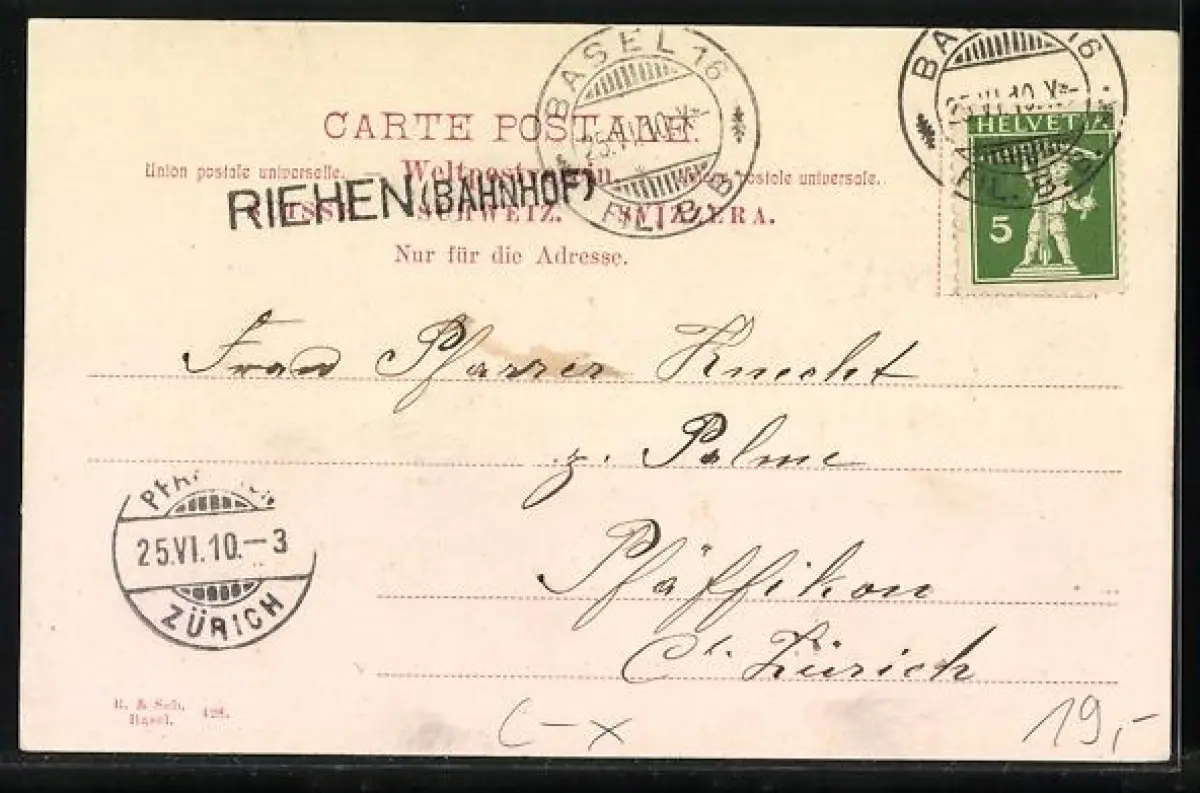 BASEL 16
25.VI.10.X
FIL. B.B.
BASEL 16
25.VI.10.X
FIL. B.B.
HELVETIA
5
CARTE POSTALE.
Union postale universelle. — Weltpostverein. — Unione postale universale.
RIEHEN (BAHNHOF)
SUISSE. SCHWEIZ. SVIZZERA.
Nur für die Adresse.
Frau Pfarrer Knecht
z. Palme
Pfäffikon
Ct. Zürich
25.VI.10.–3
ZÜRICH
R. & Sch.
Basel. 428.
(–x
19,-